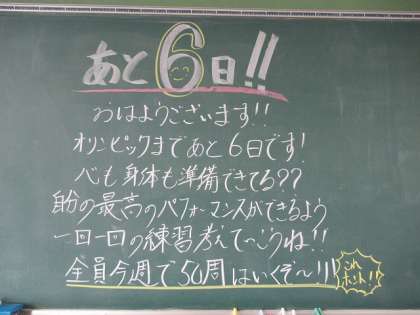 あと6日!!
おはようございます!!
オリンピックまであと6日です!
心も身体も準備できてる??
自分の最高のパフォーマンスができるよう
一回一回の練習考えて〜こうね!!
全員今週で50周はいくぞ〜!!!
これホント!!